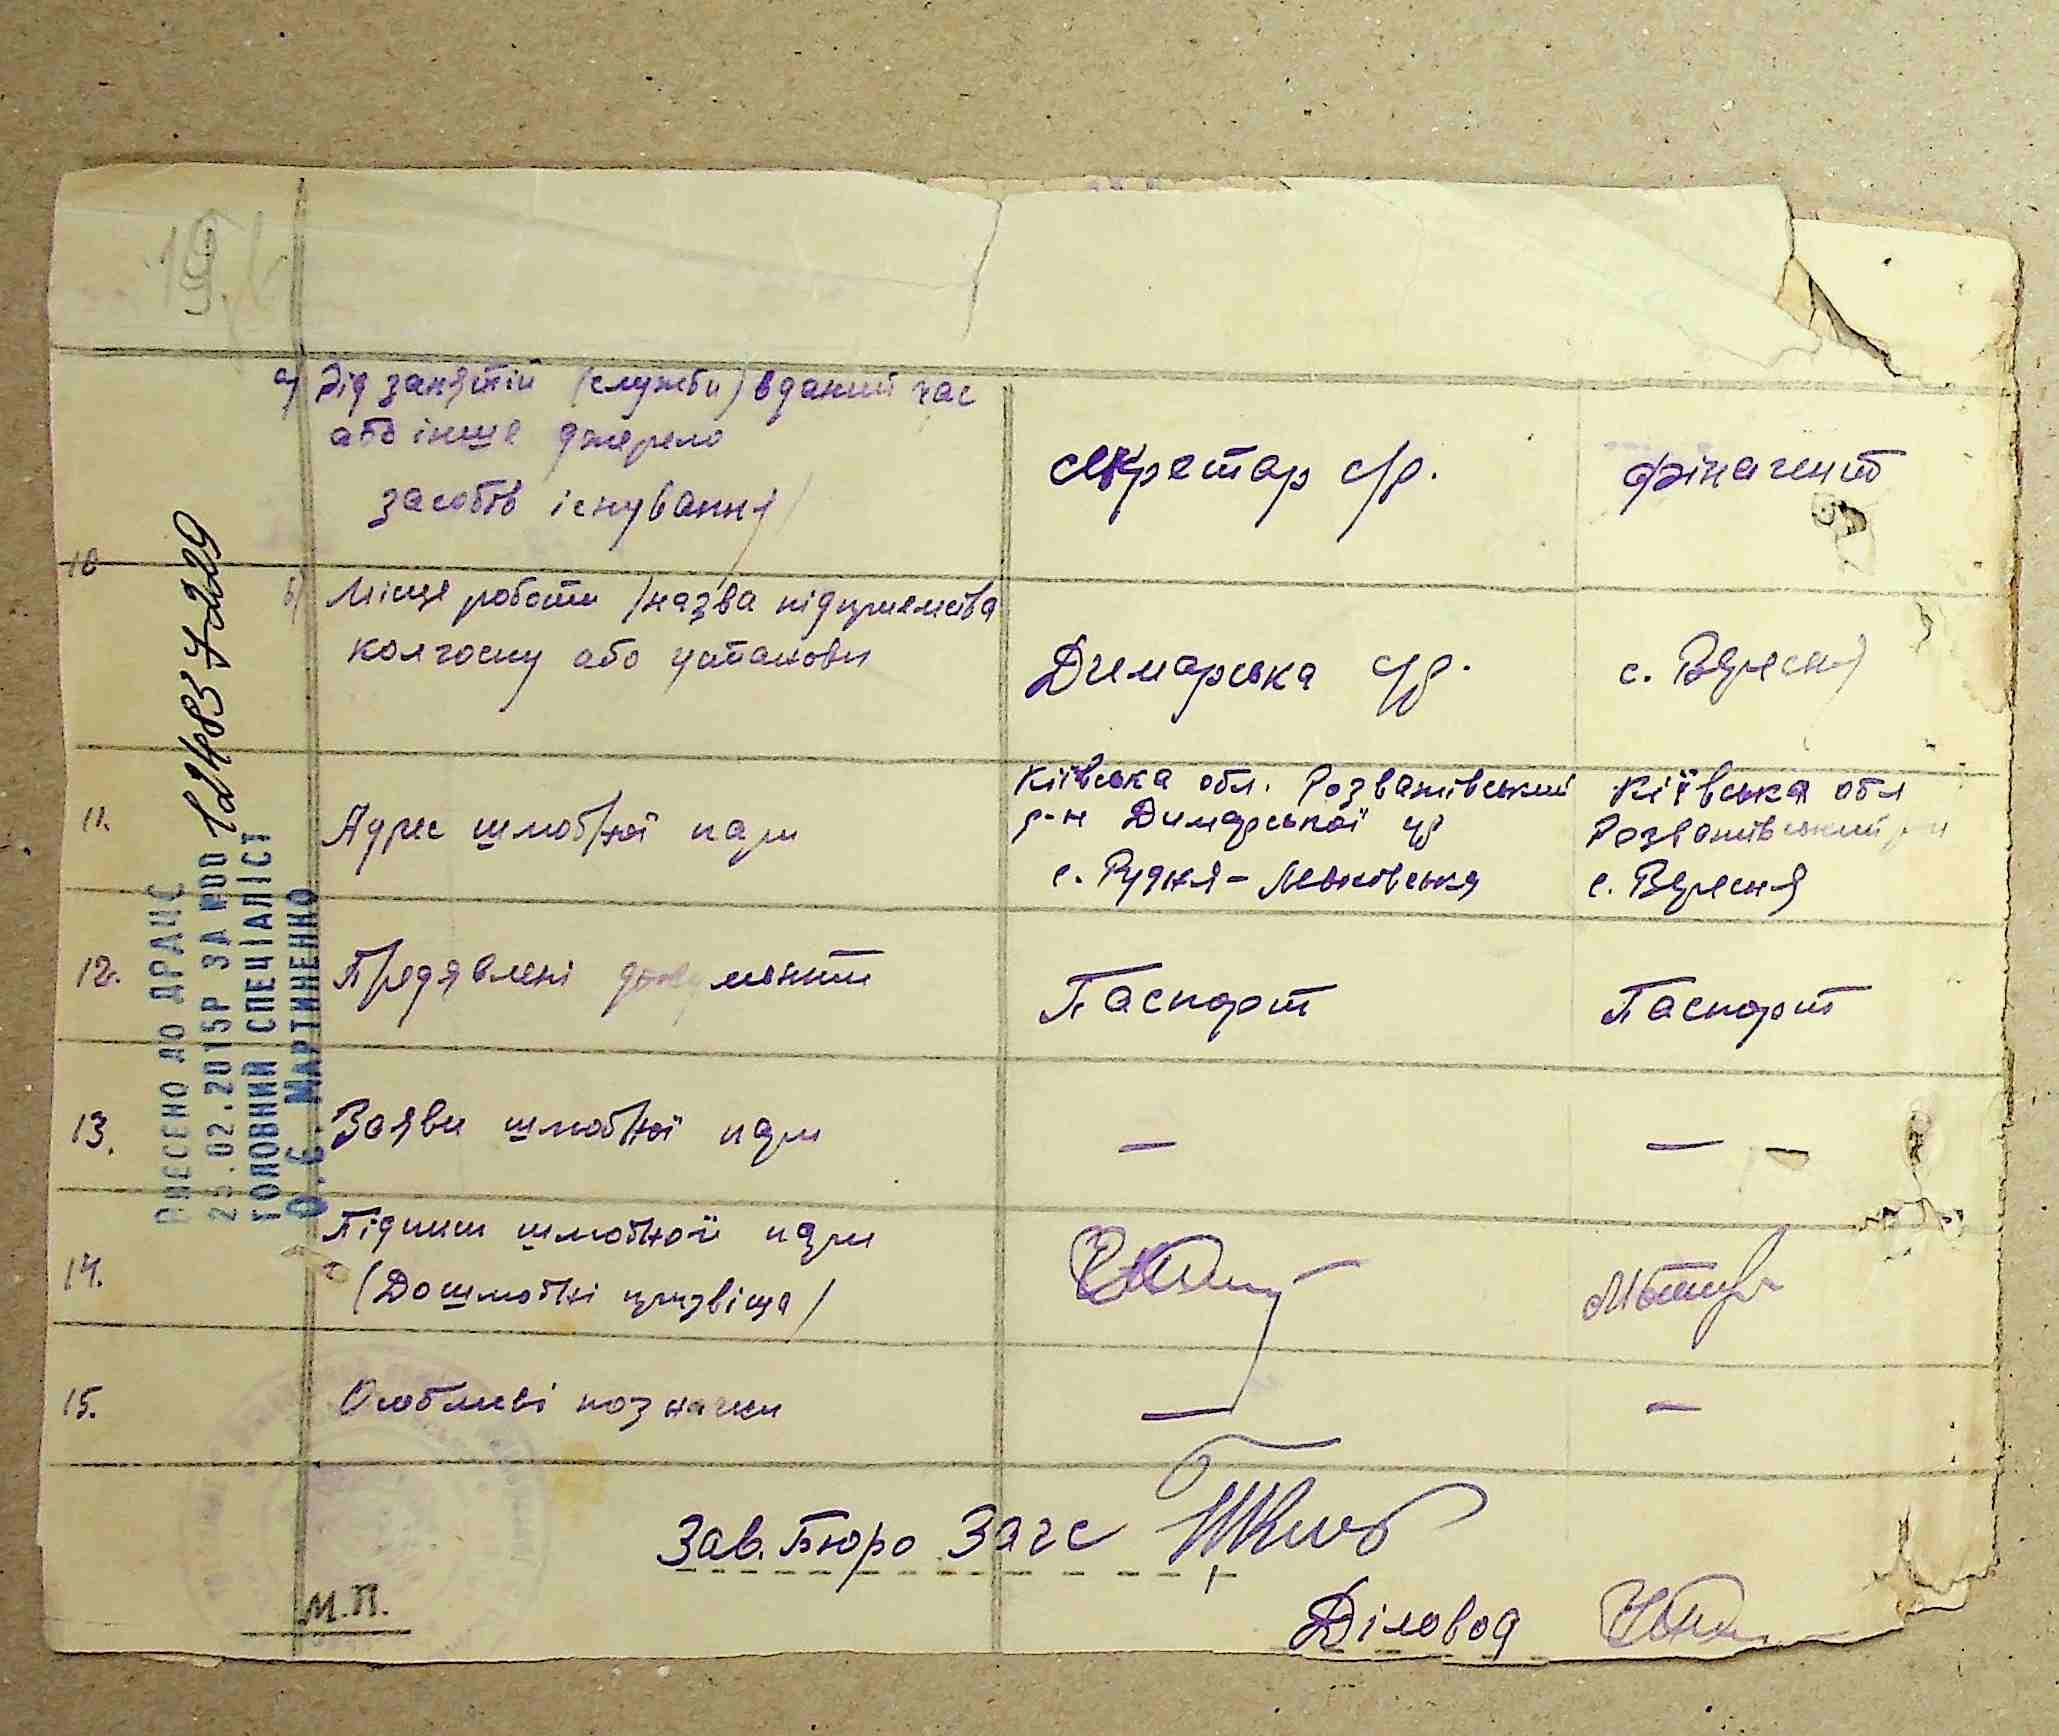 19.
а) Рід занятій (служби) в даний час
або інше джерело
засобів існування/
секретар с/р.
фінагент
10
б) Місце роботи /назва підприємства
колгоспу або установи
Димарська с/р.
с. Вересня
11.
Адрес шлюбної пари
Київська обл. Розважівський
р-н Димарської с/р
с. Рудня-
Київська обл
Розважівський р-н
с. Вересня
12.
Предявлені документи
Паспорт
Паспорт
13.
Заяви шлюбної пари
—
— –
14.
Підписи шлюбної пари
(Дошлюбні прізвища/
15.
Особливі позначки
—
—
Зав. Бюро Загс
Діловод
М.П.
ВНЕСЕНО ДО ДРАЦС
25.02.2015Р ЗА №00 124837229
ГОЛОВНИЙ СПЕЦІАЛІСТ
О.Є. МАРТИНЕНКО